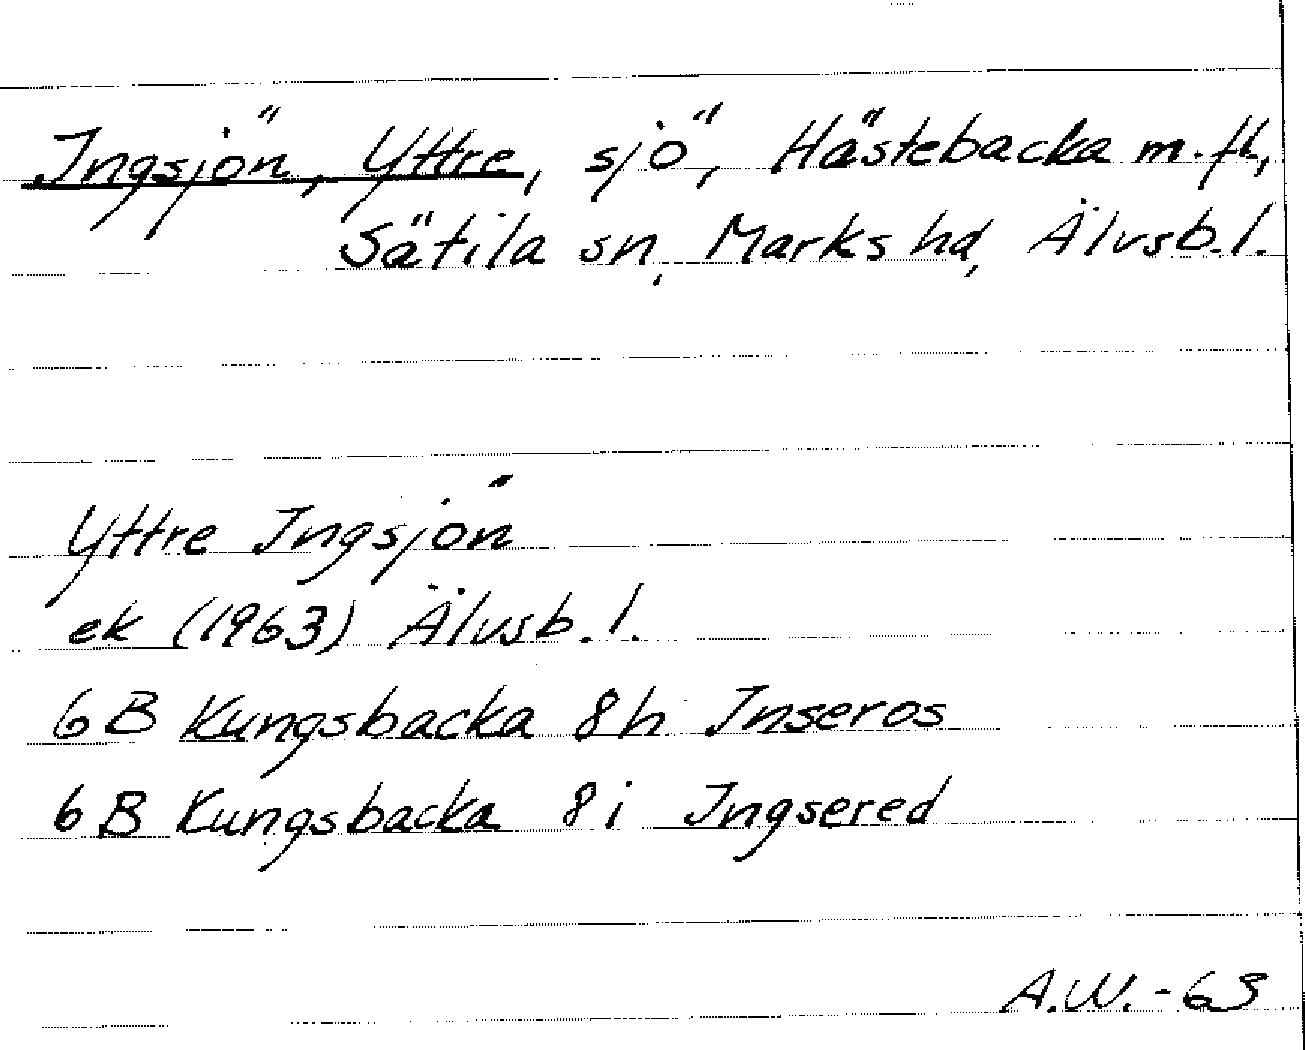 Ingsjön, Yttre, sjö, Hästebacka m.fl.,
Sätila sn, Marks hd, Älvsb.l.
Yttre Ingsjön
ek (1963) Älvsb.l.
6B Kungsbacka 8h Inseros
6B Kungsbacka 8i Ingsered
A.W.-63